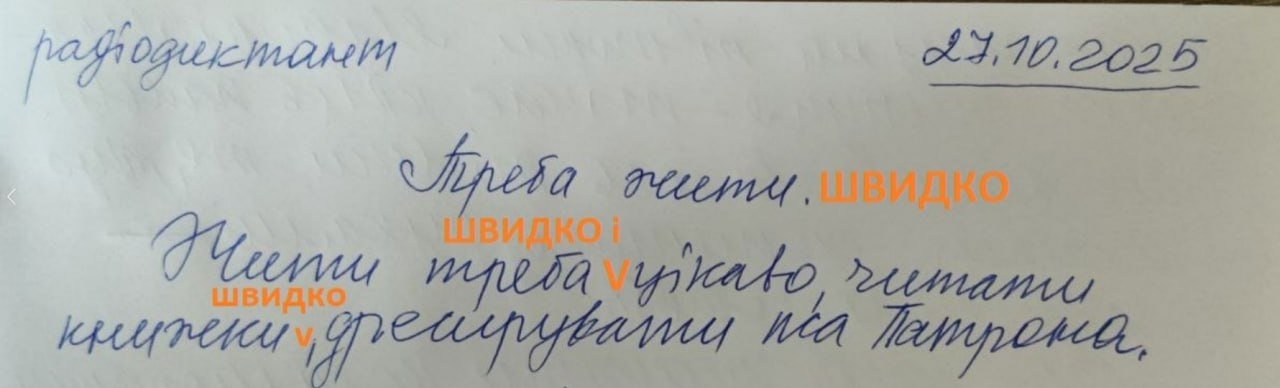 радіодиктант 27.10.2025
Треба жити. ШВИДКО
ШВИДКО і
Жити треба V цікаво, читати
швидко
книжки v, дресирувати пса Патрона.